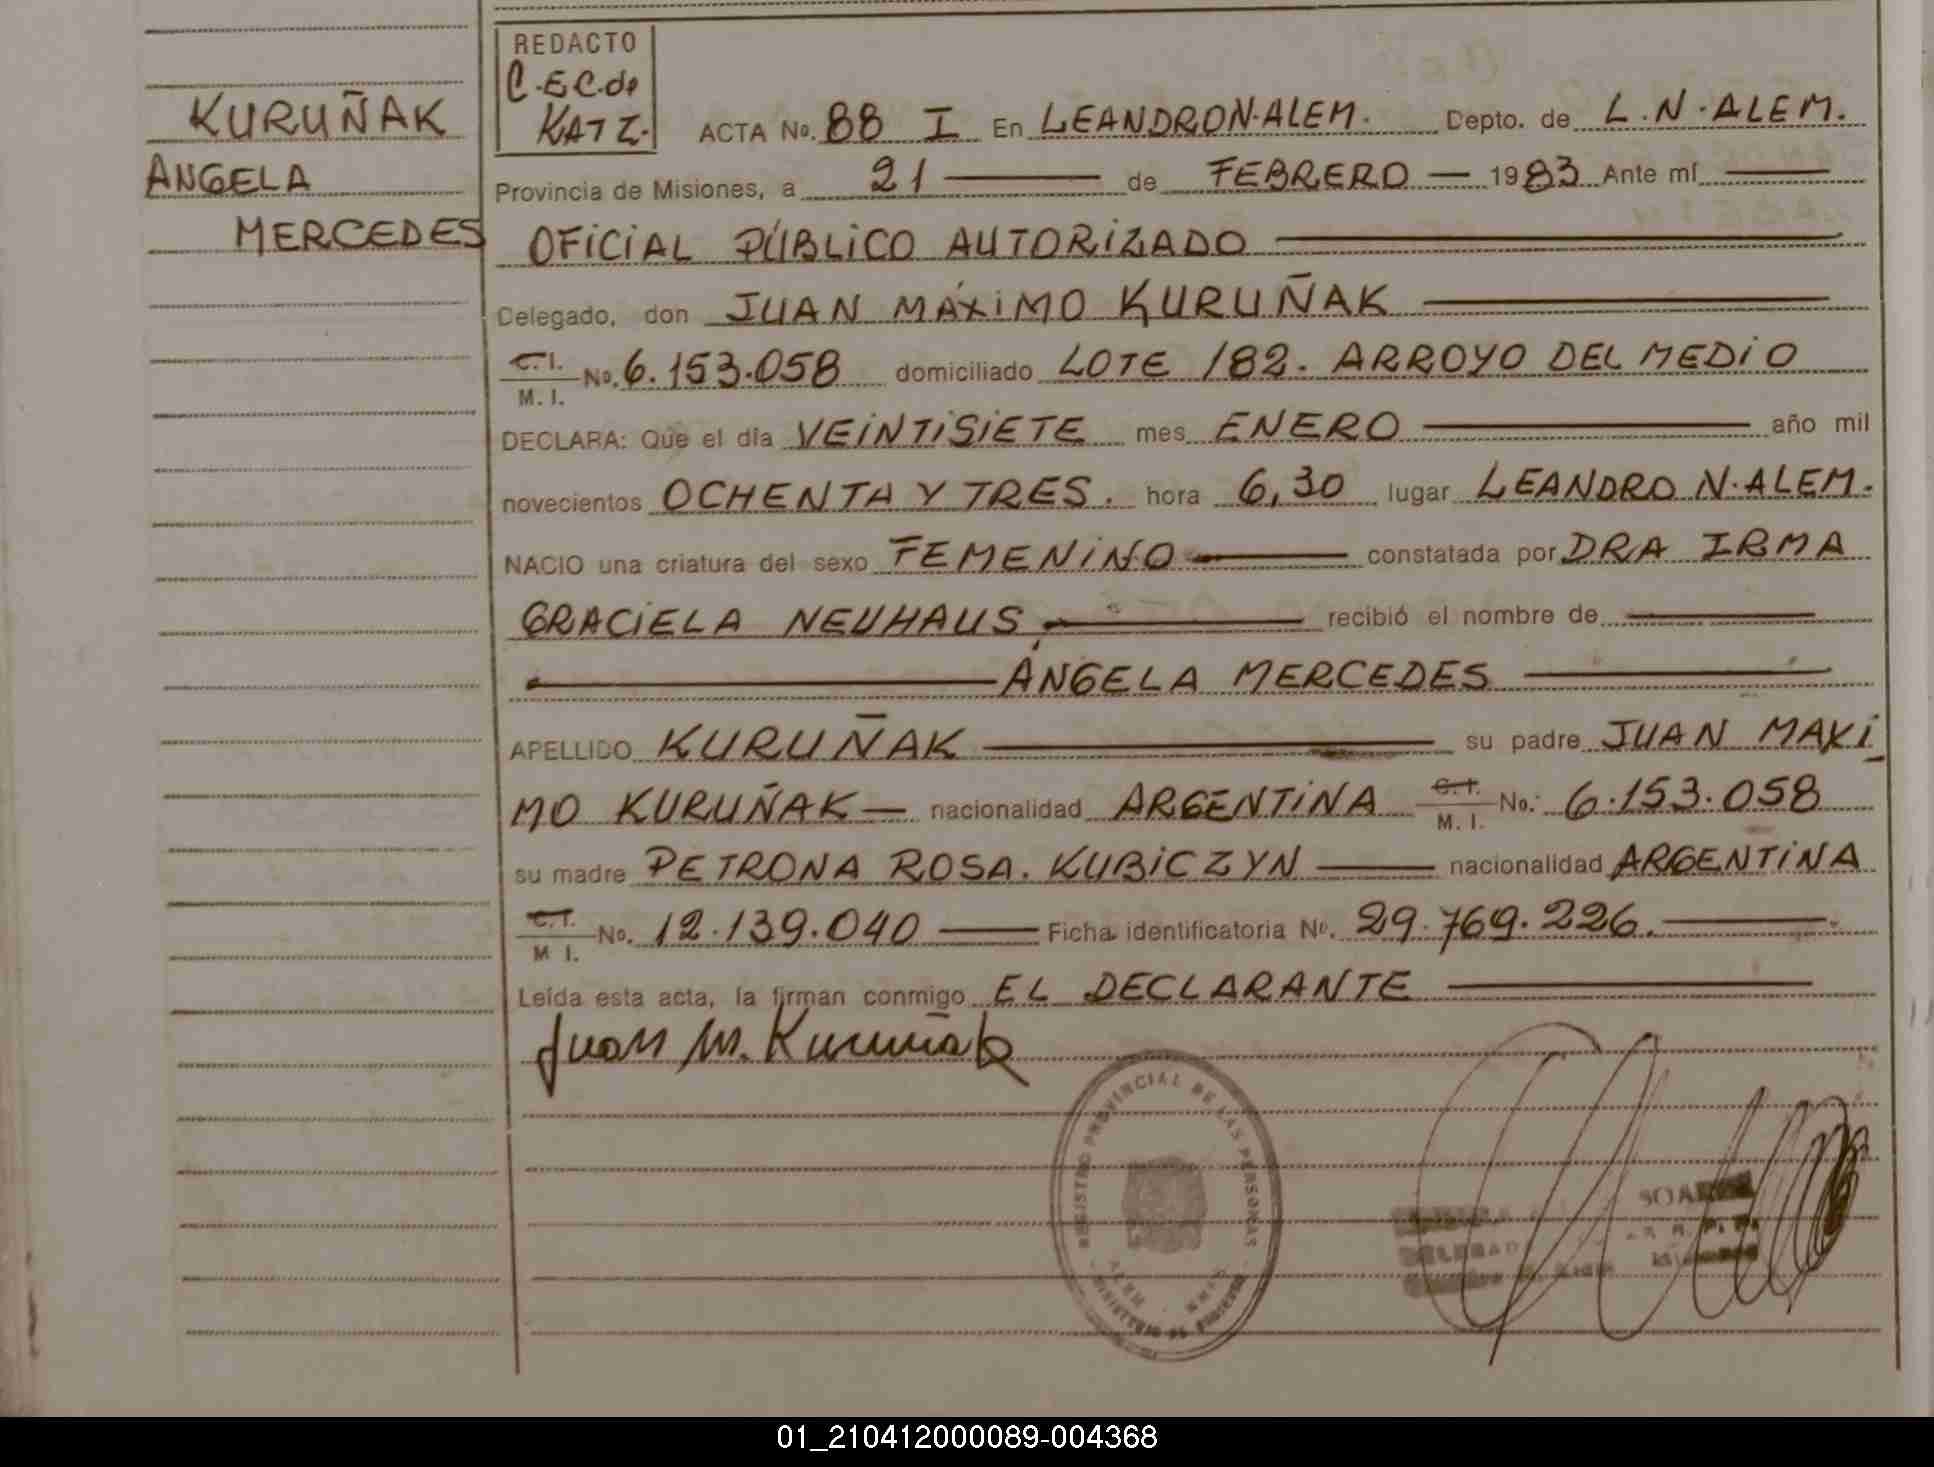 KURUÑAK
ANGELA
MERCEDES
REDACTO
C.E.C.de
KATZ.
ACTA No. 88 I En LEANDRO N. ALEM. Depto. de L.N. ALEM.
Provincia de Misiones, a 21 de FEBRERO 1983 Ante mí
OFICIAL PÚBLICO AUTORIZADO
Delegado, don JUAN MÁXIMO KURUÑAK
C.I.
M.I. No. 6.153.058 domiciliado LOTE 182. ARROYO DEL MEDIO
DECLARA: Que el día VEINTISIETE mes ENERO año mil
novecientos OCHENTA Y TRES. hora 6,30 lugar LEANDRO N. ALEM.
NACIO una criatura del sexo FEMENINO constatada por DRA IRMA
GRACIELA NEUHAUS recibió el nombre de
ÁNGELA MERCEDES
APELLIDO KURUÑAK su padre JUAN MAXI
MO KURUÑAK nacionalidad ARGENTINA C.I. M.I. No. 6.153.058
su madre PETRONA ROSA. KUBICZYN nacionalidad ARGENTINA
C.I.
M I. No. 12.139.040 Ficha identificatoria No. 29.769.226.
Leída esta acta, la firman conmigo EL DECLARANTE
Juan M. Kuruñak
REGISTRO PROVINCIAL DE LAS PERSONAS
ALEM
SOARES
01_210412000089-004368